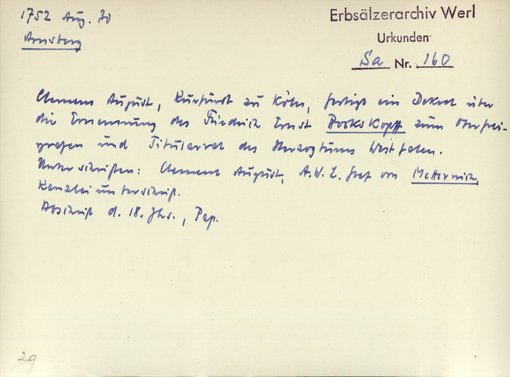 1752 Aug. 30
Arnsberg
Erbsälzerarchiv Werl
Urkunden
Sa Nr. 160
Clemens August, Kurfürst zu Köln, fertigt ein Dekret über
die Ernennung des Friedrich Ernst Bockskopff zum Oberfrei-
grafen und Titularrat des Herzogtums Westfalen.
Unterschriften: Clemens August, A.W.L. Graf von Metternich,
Kanzleiunterschrift.
Abschrift d. 18. Jhs., Pap.
29